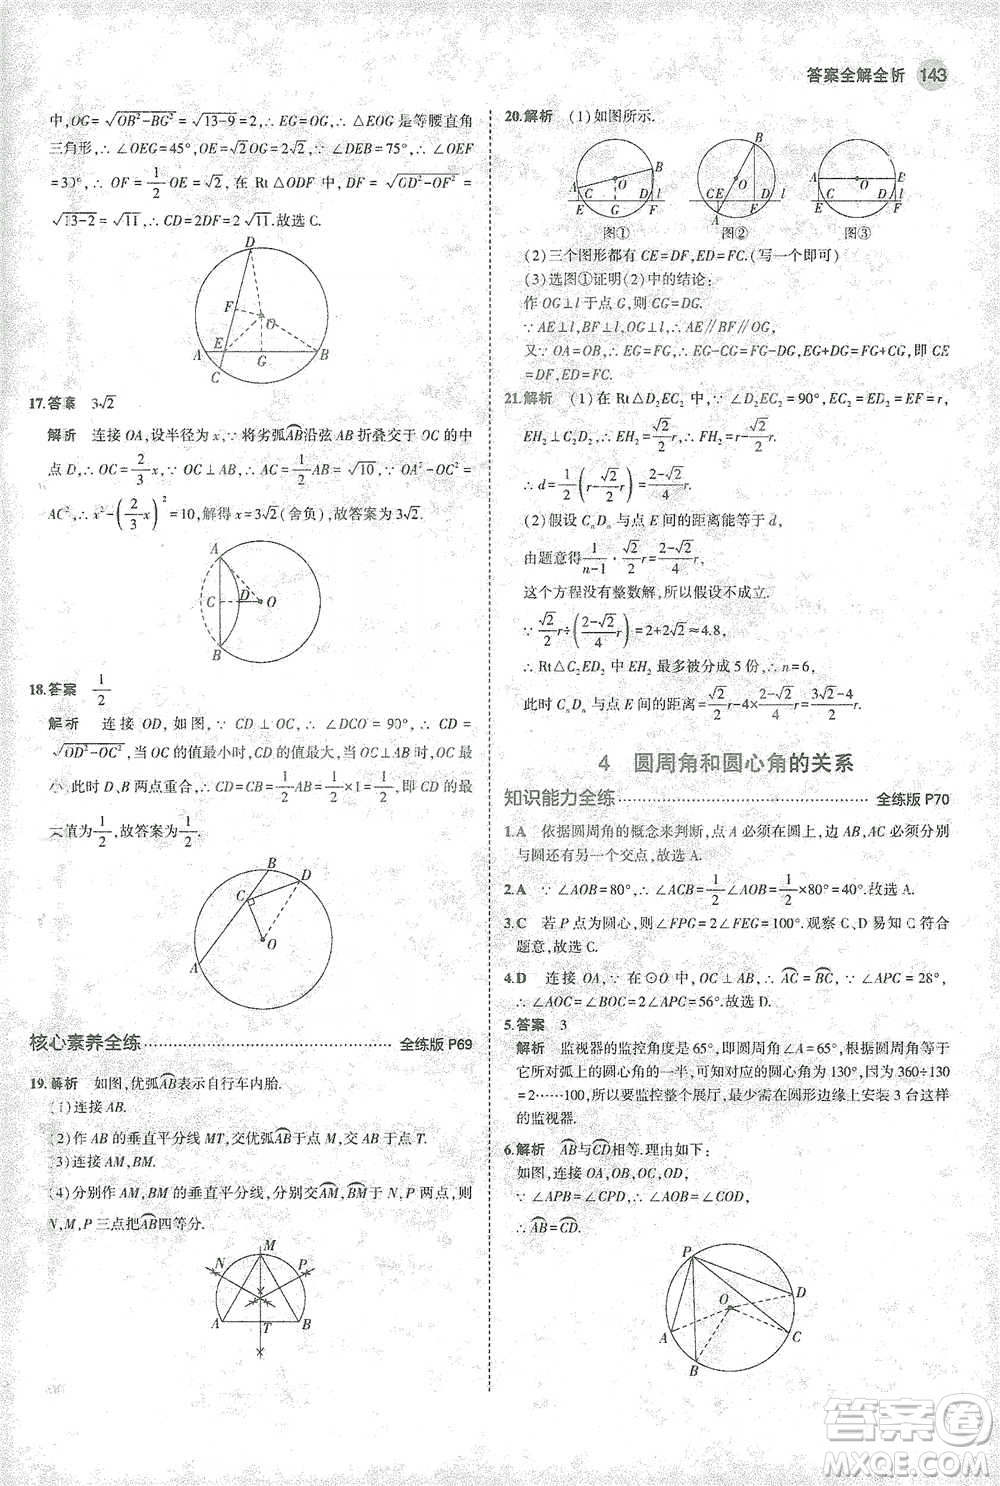 答案全解全析 143
中,OG=√(OB²-BG²)=√(13-9)=2,∴EG=OG,∴△EOG是等腰直角
三角形,∴∠OEG=45°,OE=2√2,∵∠DEB=75°,∴∠OEF
=30°,∴OF=1/2OE=√2,在Rt△ODF中,DF=√(OD²-OF²)=
√(13-2)=√11,∴CD=2DF=2√11.故选C.
D
F
O
E
A
G
B
C
17.答案 3√2
解析 连接OA,设半径为x,∵将劣弧AB沿弦AB折叠交于OC的中
点D,∴OC=2/3x,∵OC⊥AB,∴AC=1/2AB=√10,∵OA²-OC²=
AC²,∴x²-(2/3x)²=10,解得x=3√2(舍负),故答案为3√2.
A
C D O
B
18.答案 1/2
解析 连接OD,如图,∵CD⊥OC,∴∠DCO=90°,∴CD=
√(OD²-OC²),当OC的值最小时,CD的值最大,当OC⊥AB时,OC最
小,此时D、B两点重合,∴CD=CB=1/2AB=1/2×1=1/2,即CD的最
大值为1/2,故答案为1/2.
B
D
C
O
A
核心素养全练 全练版P69
19.解析 如图,优弧AB表示自行车内胎.
(1)连接AB.
(2)作AB的垂直平分线MT,交优弧AB于点M,交AB于点T.
(3)连接AM,BM.
(4)分别作AM,BM的垂直平分线,分别交AM,BM于N,P两点,则
N,M,P三点把AB四等分.
M
N P
A T B
20.解析 (1)如图所示.
A B C D O E G F l
图① 图② 图③
(2)三个图形都有CE=DF,ED=FC.(写一个即可)
(3)选图①证明(2)中的结论:
作OG⊥l于点G,则CG=DG.
∵AE⊥l,BF⊥l,OG⊥l,∴AE∥BF∥OG,
又∵OA=OB,∴EG=FG,∴EG-CG=FG-DG,EG+DG=FG+CG,即CE
=DF,ED=FC.
21.解析 (1)在Rt△D₂EC₂中,∵∠D₂EC₂=90°,EC₂=ED₂=EF=r,
EH₂⊥C₂D₂,∴EH₂=√2/2r,∴FH₂=r-√2/2r=(2-√2)/2r,
∴d=1/2(r-√2/2r)=(2-√2)/4r.
(2)假设CₙDₙ与点E间的距离能等于d,
由题意得1/(n-1)·√2/2r=(2-√2)/4r,
这个方程没有整数解,∴假设不成立.
∵√2/2r÷((2-√2)/4r)=2+2√2≈4.8,
∴Rt△C₂ED₂中EH₂最多被分成5份,∴n=6,
此时CₙDₙ与点E间的距离=√2/2r-4×(2-√2)/4r=(3√2-4)/2r.
4 圆周角和圆心角的关系
知识能力全练 全练版P70
1.A 依据圆周角的概念来判断,点A必须在圆上,边AB,AC必须分别
与圆还有另一个交点,故选A.
2.A ∵∠AOB=80°,∴∠ACB=1/2∠AOB=1/2×80°=40°.故选A.
3.C 若P点为圆心,则∠FPG=2∠FEG=100°.观察C、D易知C符合
题意,故选C.
4.D 连接OA,∵在⊙O中,OC⊥AB,∴AC=BC,∵∠APC=28°,
∴∠AOC=∠BOC=2∠APC=56°.故选D.
5.答案 3
解析 监视器的监控角度是65°,即圆周角∠A=65°,圆周角的度数是
它所对弧上的圆心角的一半,可知对应的圆心角为130°,因为360÷130
=2……100,所以要监控整个展厅,最少需在圆形边缘上安装3台这样
的监视器.
6.解析 AB与CD相等.理由如下:
如图,连接OA,OB,OC,OD,
∵∠APB=∠CPD,∴∠AOB=∠COD,
∴AB=CD.
P
O
D
A
C
B
答案圈
MXQE.COM